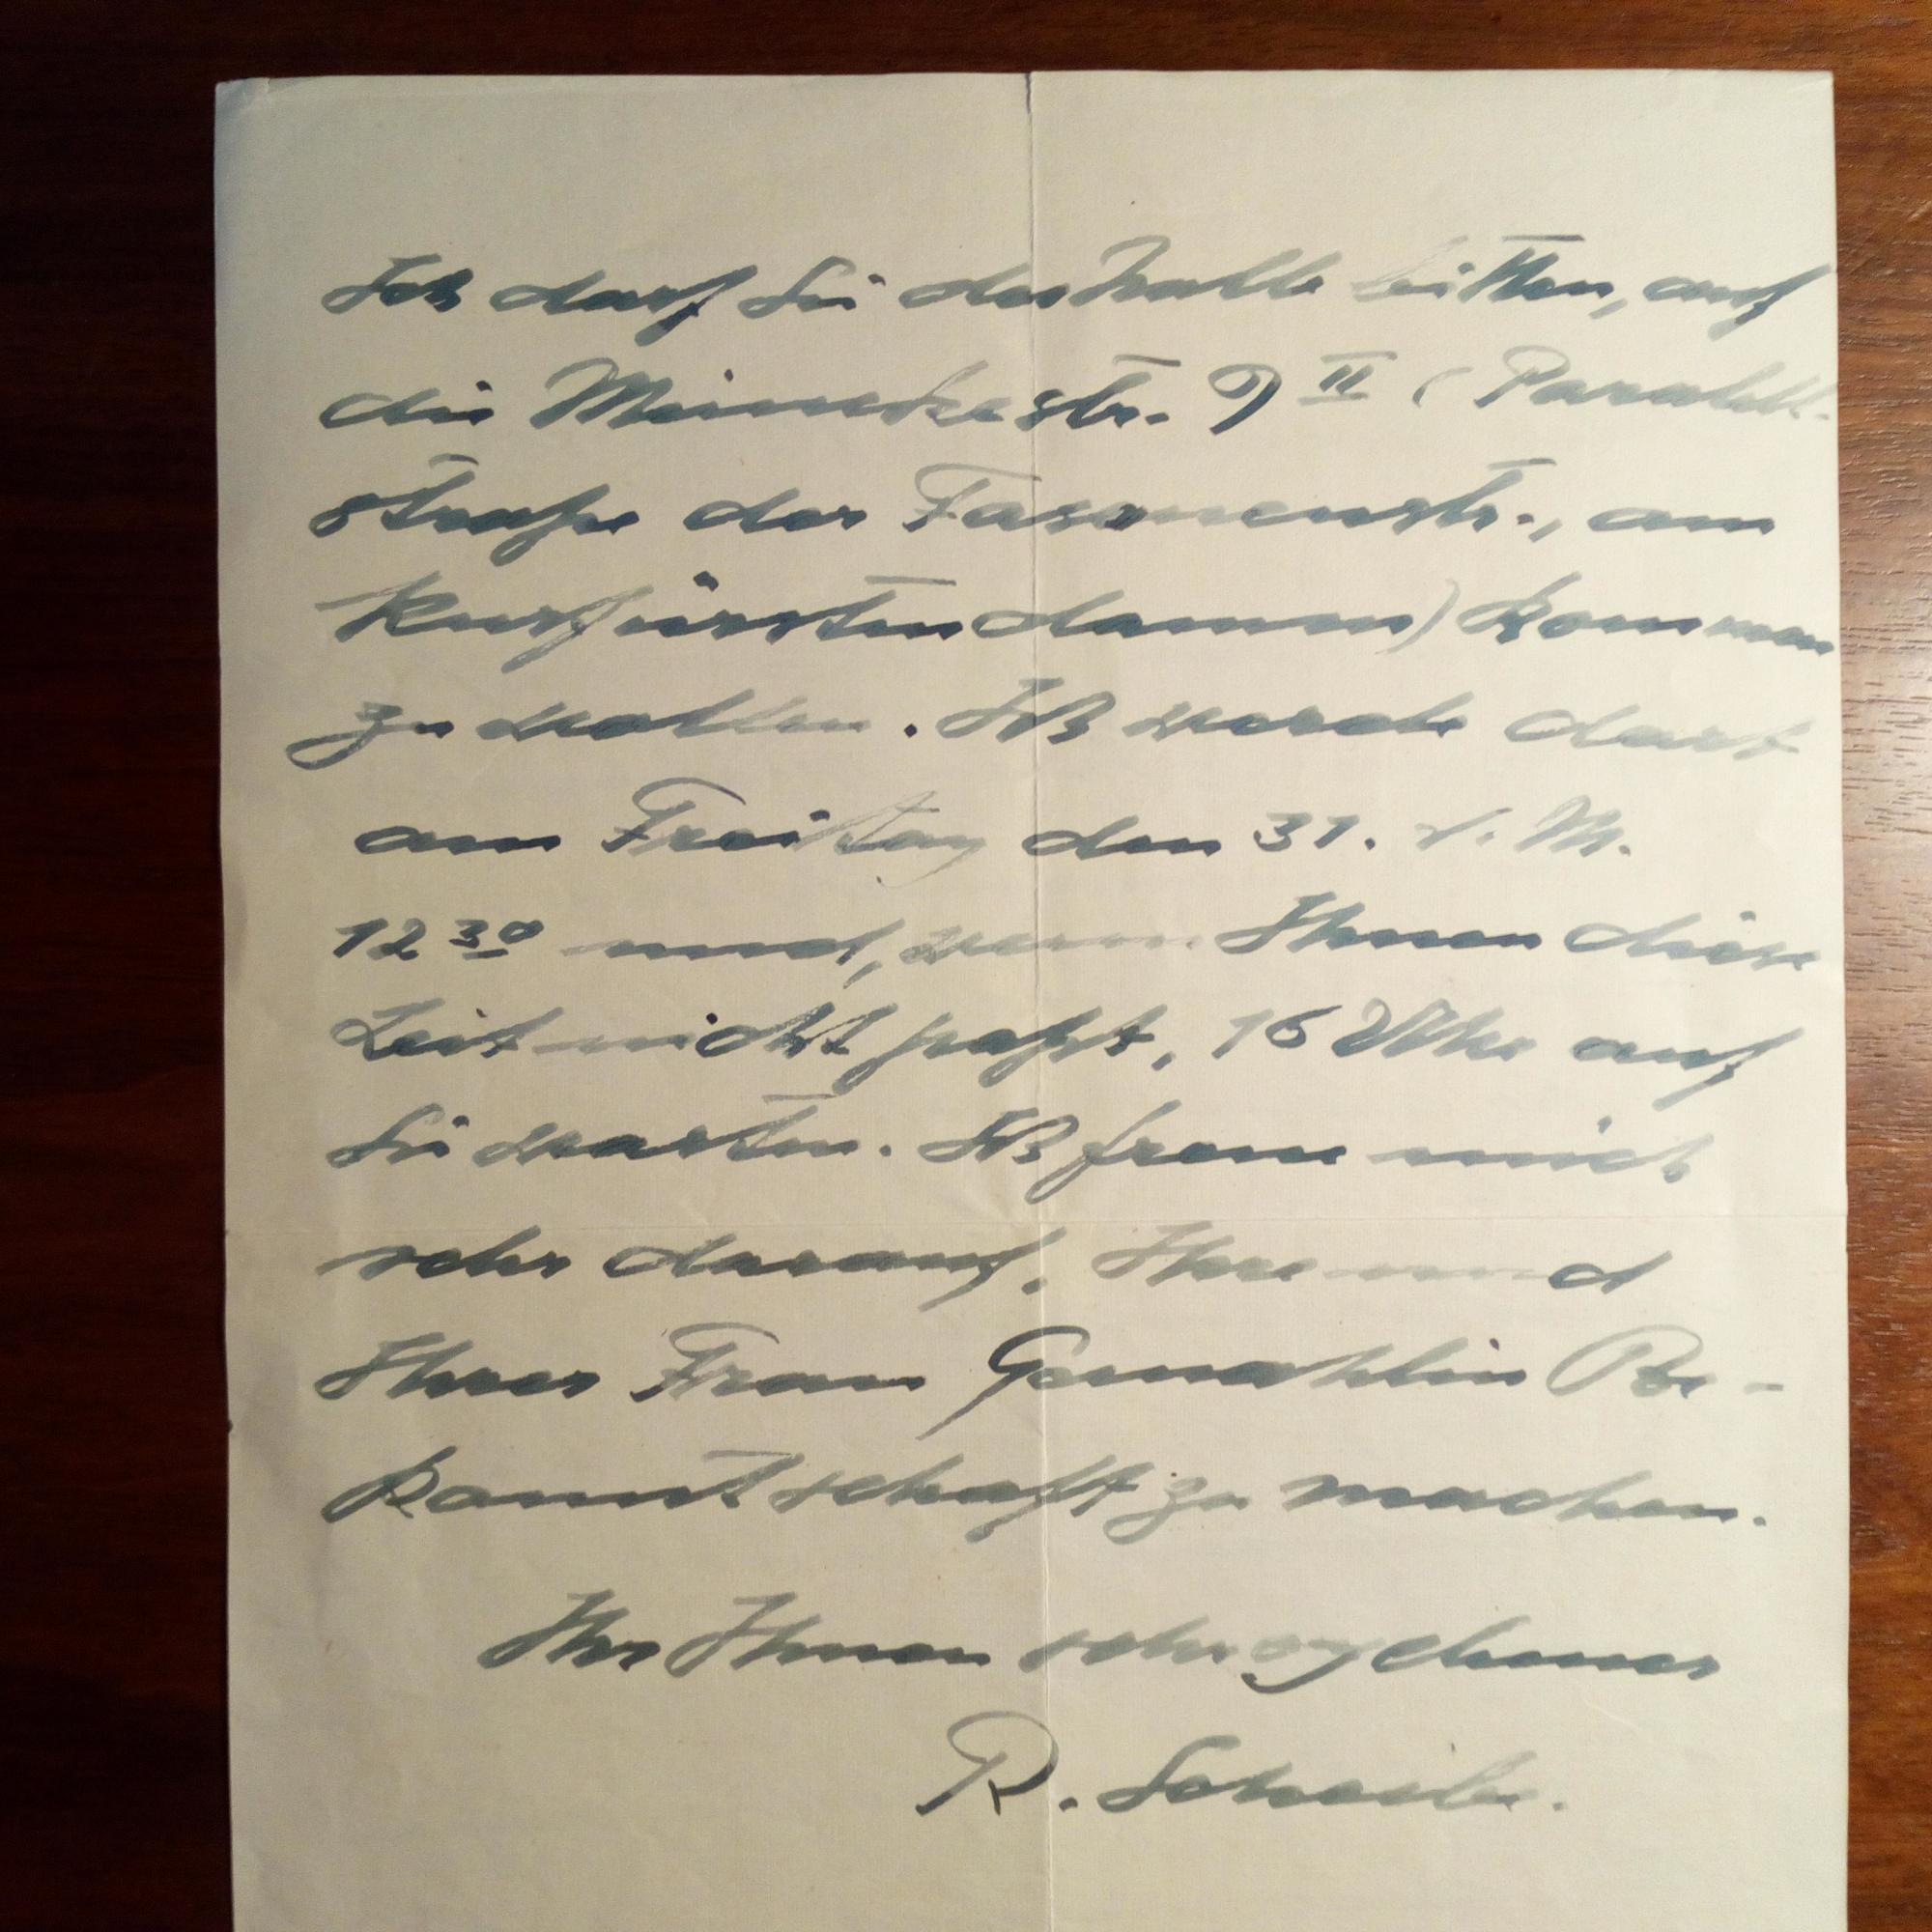 Ich darf Sie deshalb bitten, auf
die Meinekestr. 9 II (Parallel-
straße der Fasanenstr., am
Kurfürstendamm) kommen
zu wollen. Ich werde dort
am Freitag den 31. d. M.
12 30 und, wenn Ihnen diese
Zeit nicht paßt, 16 Uhr auf
Sie warten. Ich freue mich
sehr darauf, Ihre und
Ihrer Frau Gemahlin Be-
kanntschaft zu machen.
Ihr Ihnen sehr ergebener
R. Scheibe.